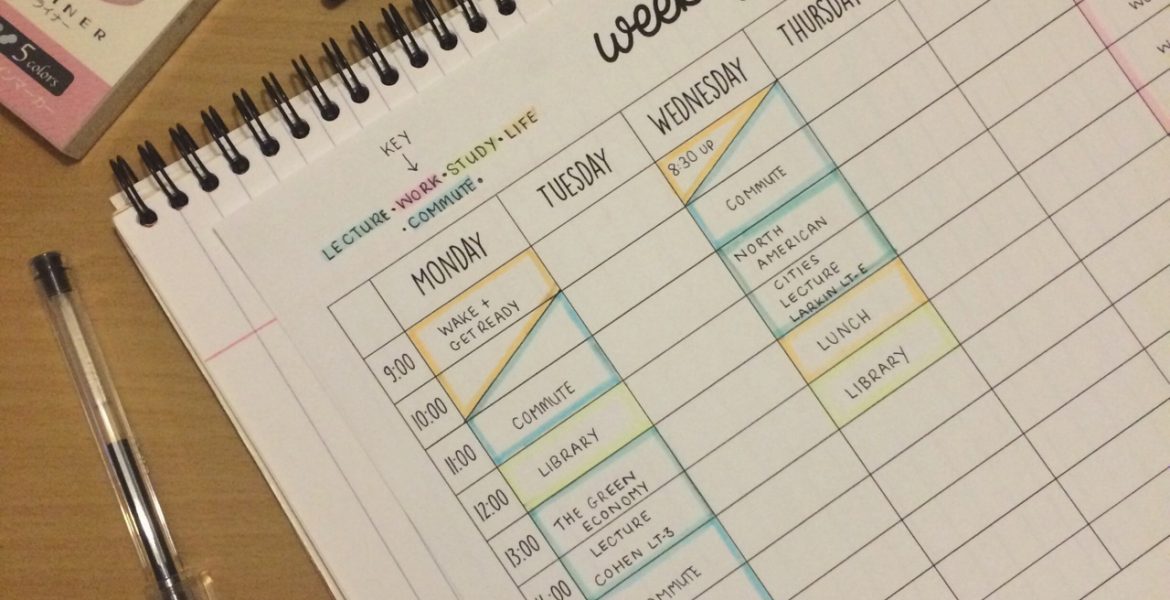 INER
ライナー
5 colors
week
KEY
LECTURE · WORK · STUDY · LIFE
· COMMUTE ·
MONDAY
TUESDAY
WEDNESDAY
THURSDAY
9:00
10:00
11:00
12:00
13:00
WAKE +
GET READY
COMMUTE
LIBRARY
THE GREEN
ECONOMY
LECTURE
COHEN LT-3
8:30 UP
COMMUTE
NORTH
AMERICAN
CITIES
LECTURE
LARKIN LT-E
LUNCH
LIBRARY